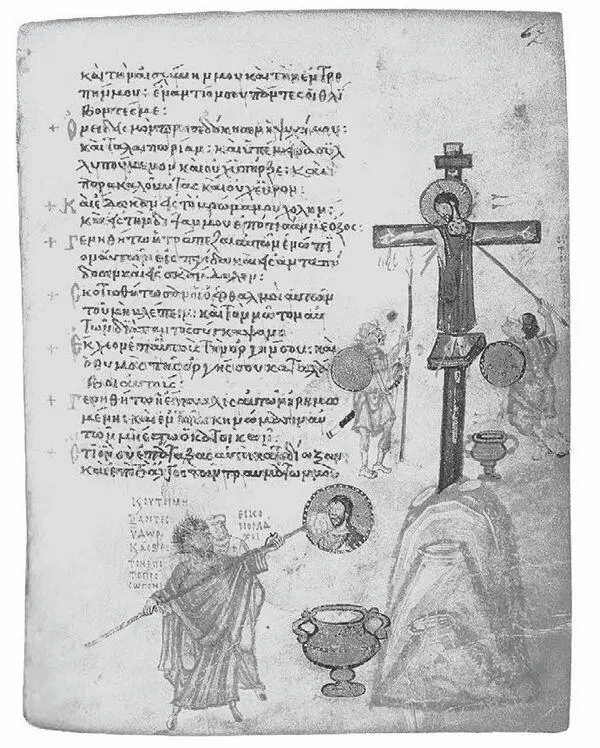 67
καὶ τὴν αἰσχύνην μου καὶ τὴν ἐντρο
πήν μου: ἐναντίον σου πάντες οἱ θλί
βοντές με:
+ Ὀνειδισμὸν προσεδόκησεν ἡ ψυχή μου:
καὶ ταλαιπωρίαν: καὶ ὑπέμεινα συλ
λυπούμενον καὶ οὐχ ὑπῆρξε: καὶ
παρακαλοῦντας καὶ οὐχ εὗρον:
+ Καὶ ἔδωκαν εἰς τὸ βρῶμά μου χολήν:
καὶ εἰς τὴν δίψαν μου ἐπότισάν με ὄξος:
+ Γενηθήτω ἡ τράπεζα αὐτῶν ἐνώπι
ον αὐτῶν εἰς παγίδα καὶ εἰς ἀνταπό
δοσιν καὶ εἰς σκάνδαλον:
+ Σκοτισθήτωσαν οἱ ὀφθαλμοὶ αὐτῶν
τοῦ μὴ βλέπειν: καὶ τὸν νῶτον αὐ
τῶν διὰ παντὸς σύγκαμψον
+ Ἔκχεον ἐπ' αὐτοὺς τὴν ὀργήν σου: καὶ
ὁ θυμὸς τῆς ὀργῆς σου καταλά
βοι αὐτούς:
+ Γενηθήτω ἡ ἔπαυλις αὐτῶν ἠρημω
μένη: καὶ ἐν τοῖς σκηνώμασιν αὐ
τῶν μὴ ἔστω ὁ κατοικῶν:
+ Ὅτι ὃν σὺ ἐπάταξας αὐτοὶ κατεδίωξαν
καὶ ἐπὶ τὸ ἄλγος τῶν τραυμάτων μου
ΞΑΝΤΕΣ
ΥΔΩΡ